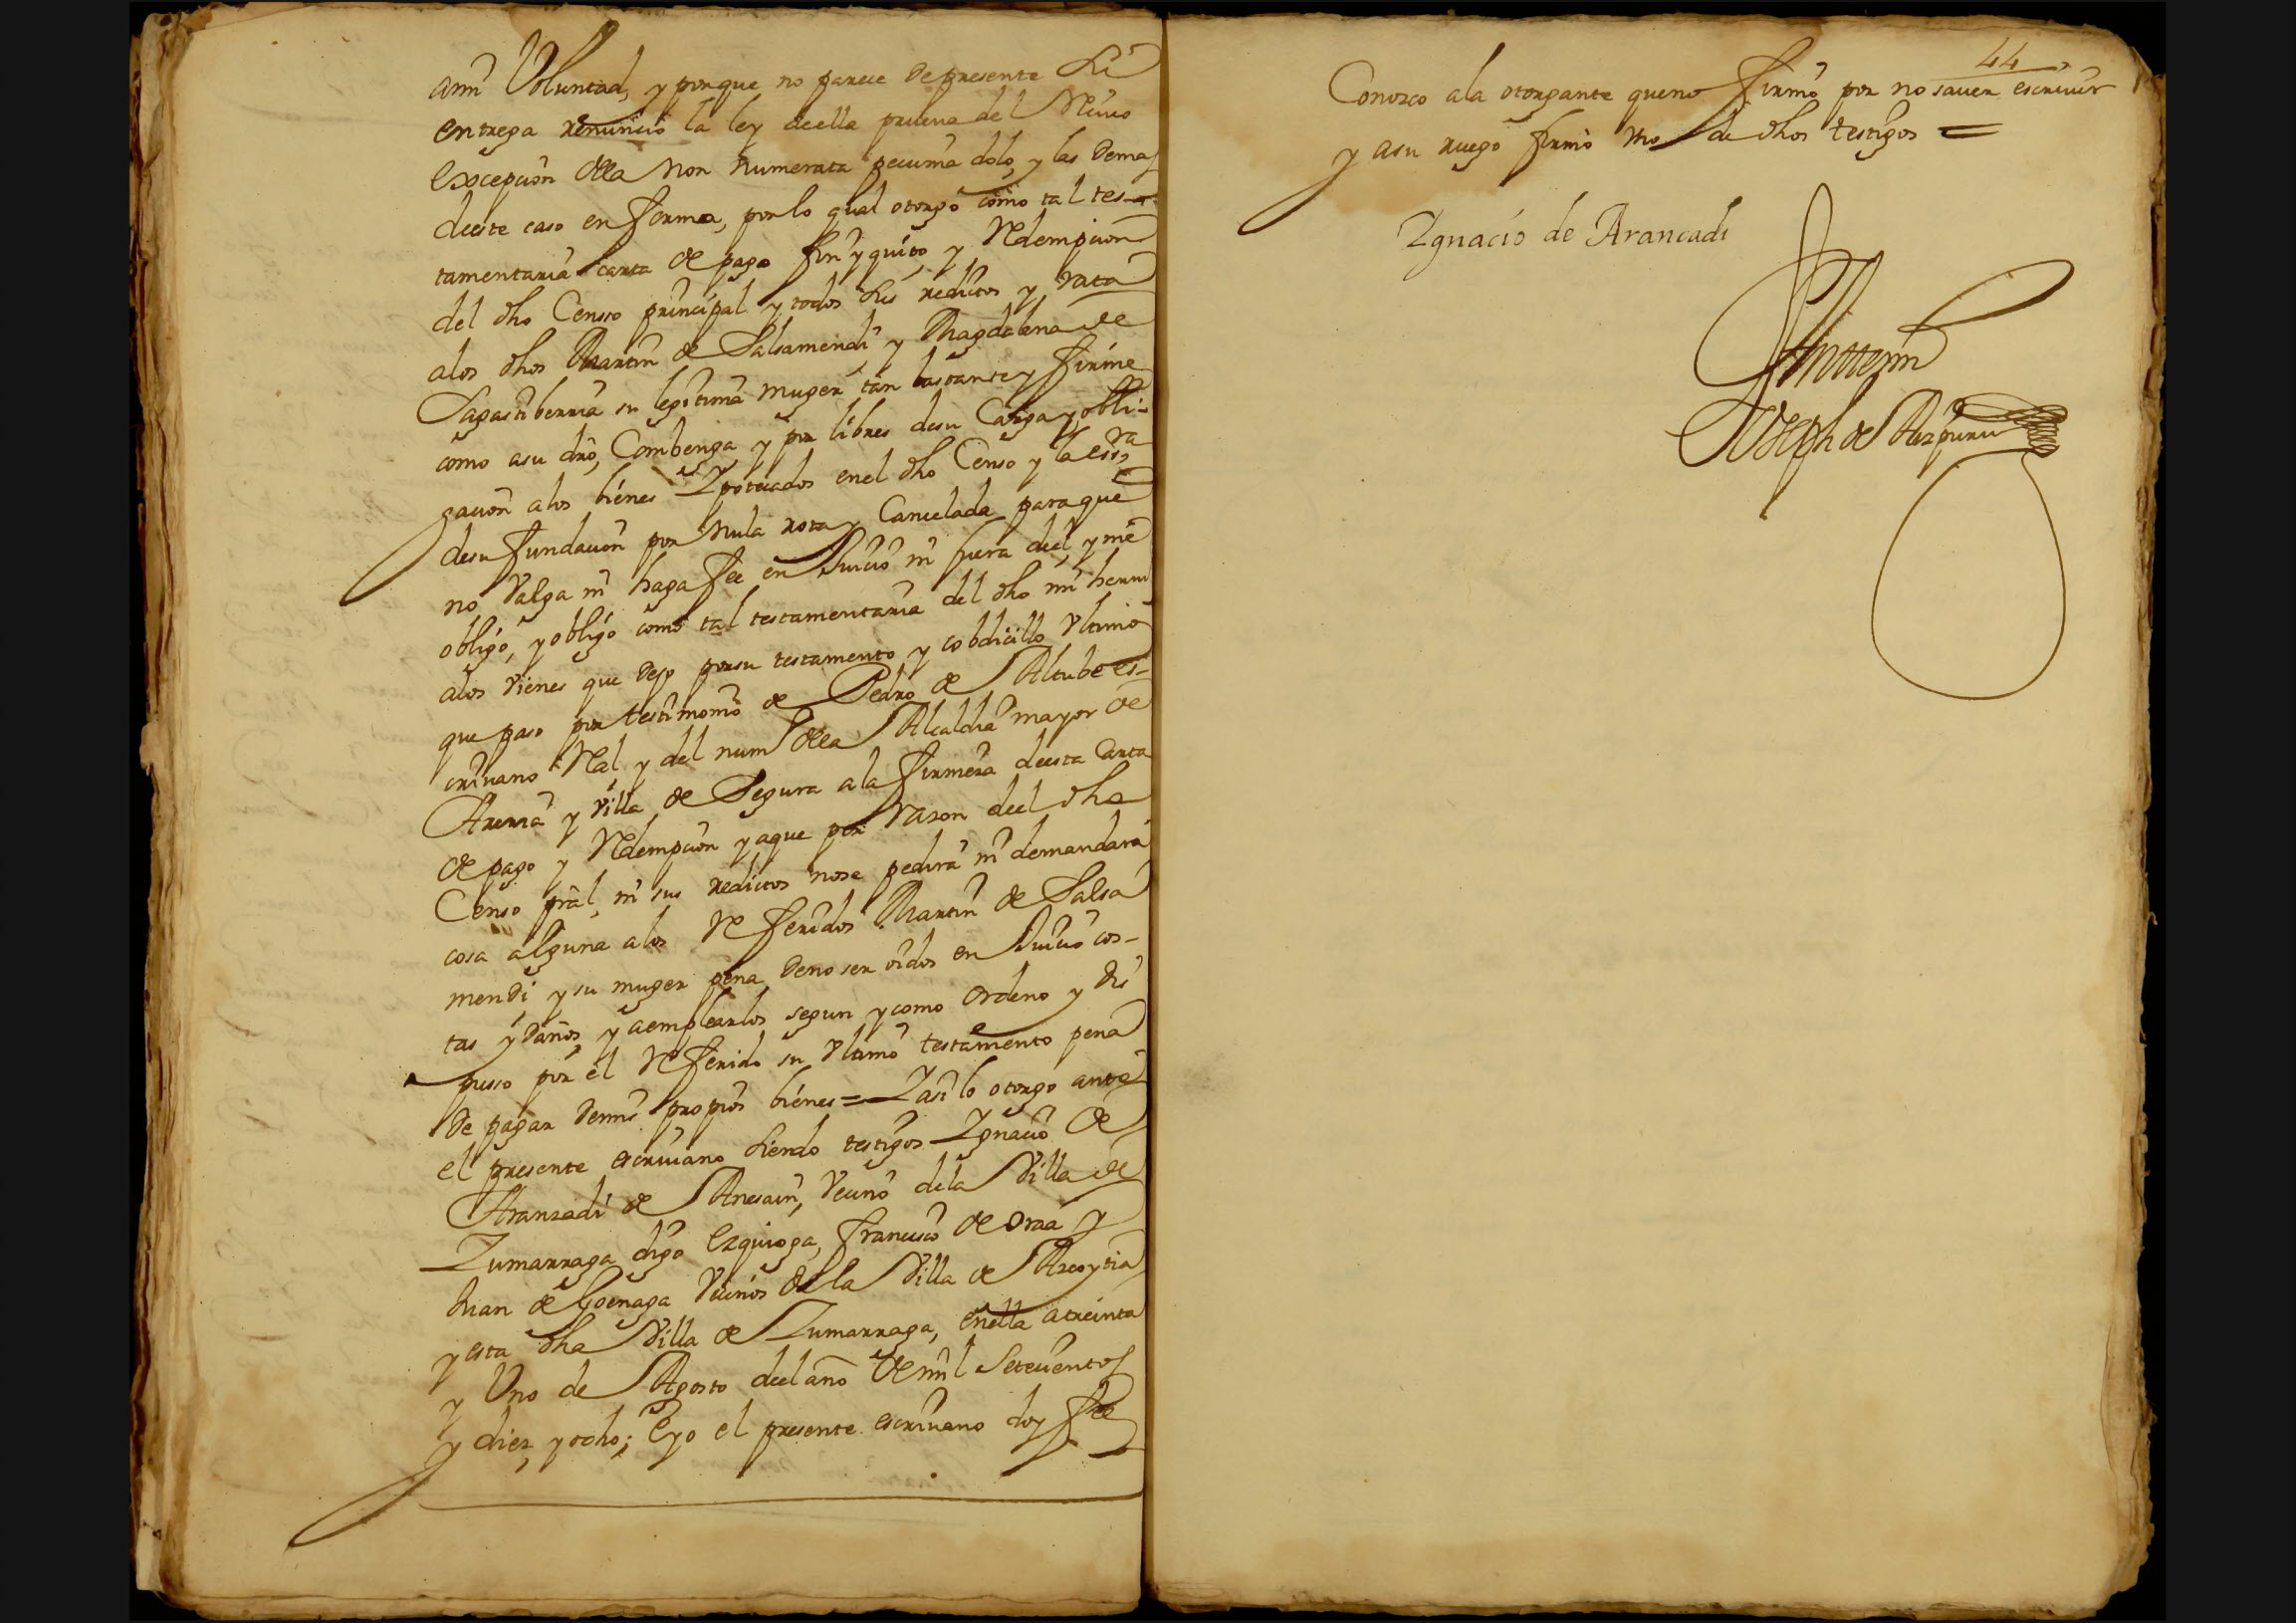 ami Voluntad, y porque no parece de presente Su
entrega renuncio la ley deella prueva del Recivo
excepcion della non numerata pecunia dolo, y las demas
deeste caso en forma, por lo qual otorgo como tal tes-
tamentaria carta de pago finyquito y Redempcion
del dho Censo principal y todos sus reditos y rata
alos dhos Martin de Salsamendi y Magdalena de
Sagastiberria su legitima muger tan bastante y firme
como asu dro, Combenga, y por libres desu Carga y obli-
gacion alos bienes Ypotecados enel dho Censo y la essra
desu fundacion por Nula rota y Cancelada para que
no Valga ni haga fee en Juicio ni fuera deel, y me
obligo, y obligo como tal testamentaria del dho mi herm
alos vienes que dejo porsu testamento y cobdicillo Vltimo
que paso por testimonio de Pedro de Altube es-
crivano Real y del num della Alcaldia mayor de
Areria y Villa de Segura ala firmeza deesta Carta
de pago y Redempcion y aque por razon deel dho
Censo pral, ni sus reditos nose pedira ni demandara
cosa alguna alos Referidos Martin de Salsa
mendi, y su muger pena, deno ser oidos en Juicio cos-
tas y daños, y aemplearlos segun y como ordeno y dis
pusso por el Referido su Vltimo testamento pena
de pagar demis propios bienes = Yasi lo otorgo ante
el presente escrivano siendo testigos Ygnacio de
Aranzadi de Anesain, Vecino dela Villa de
Zumarraga digo Ezquioga, Francisco de Oraa y
Juan de Goenaga Vecinos de la Villa de Azcoytia
y esta dha Villa de Zumarraga, enella atreinta
y Uno de Agosto deel año de mil Setecientos
y diez, y ocho; E yo el presente escrivano doy fee
44
Conozco ala otorgante queno firmo por no saver escrivir
y asu ruego firmo vno de dhos testigos =
Ygnacio de Arancadi
Ante mi
Joseph de Aizpuru